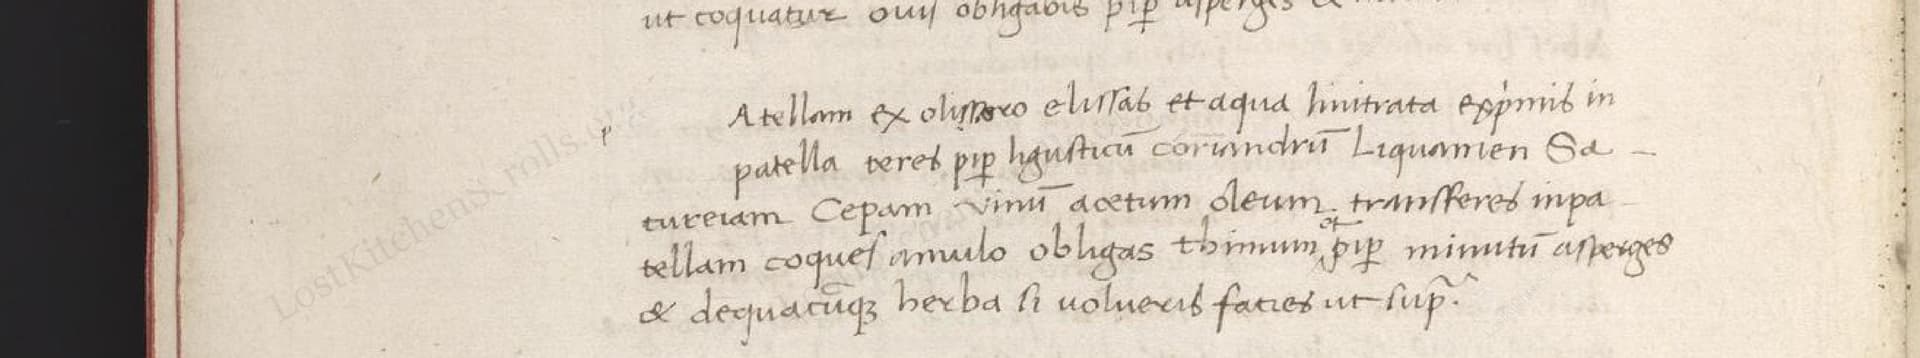 ut coquatur ouis obligabis piꝑ asperges &
p Atellam ex olissero elissas et aqua linitrata exp̍mis in
patella teres piꝑ ligusticū coriandrū Liquamen Sa-
tureiam Cepam vinū acetum oleum transferes inpa
tellam coques amulo obligas thimum et piꝑ minutū asperges
& dequacūqꝫ herba si uolueris facies ut sup̄.
LostKitchenScrolls.